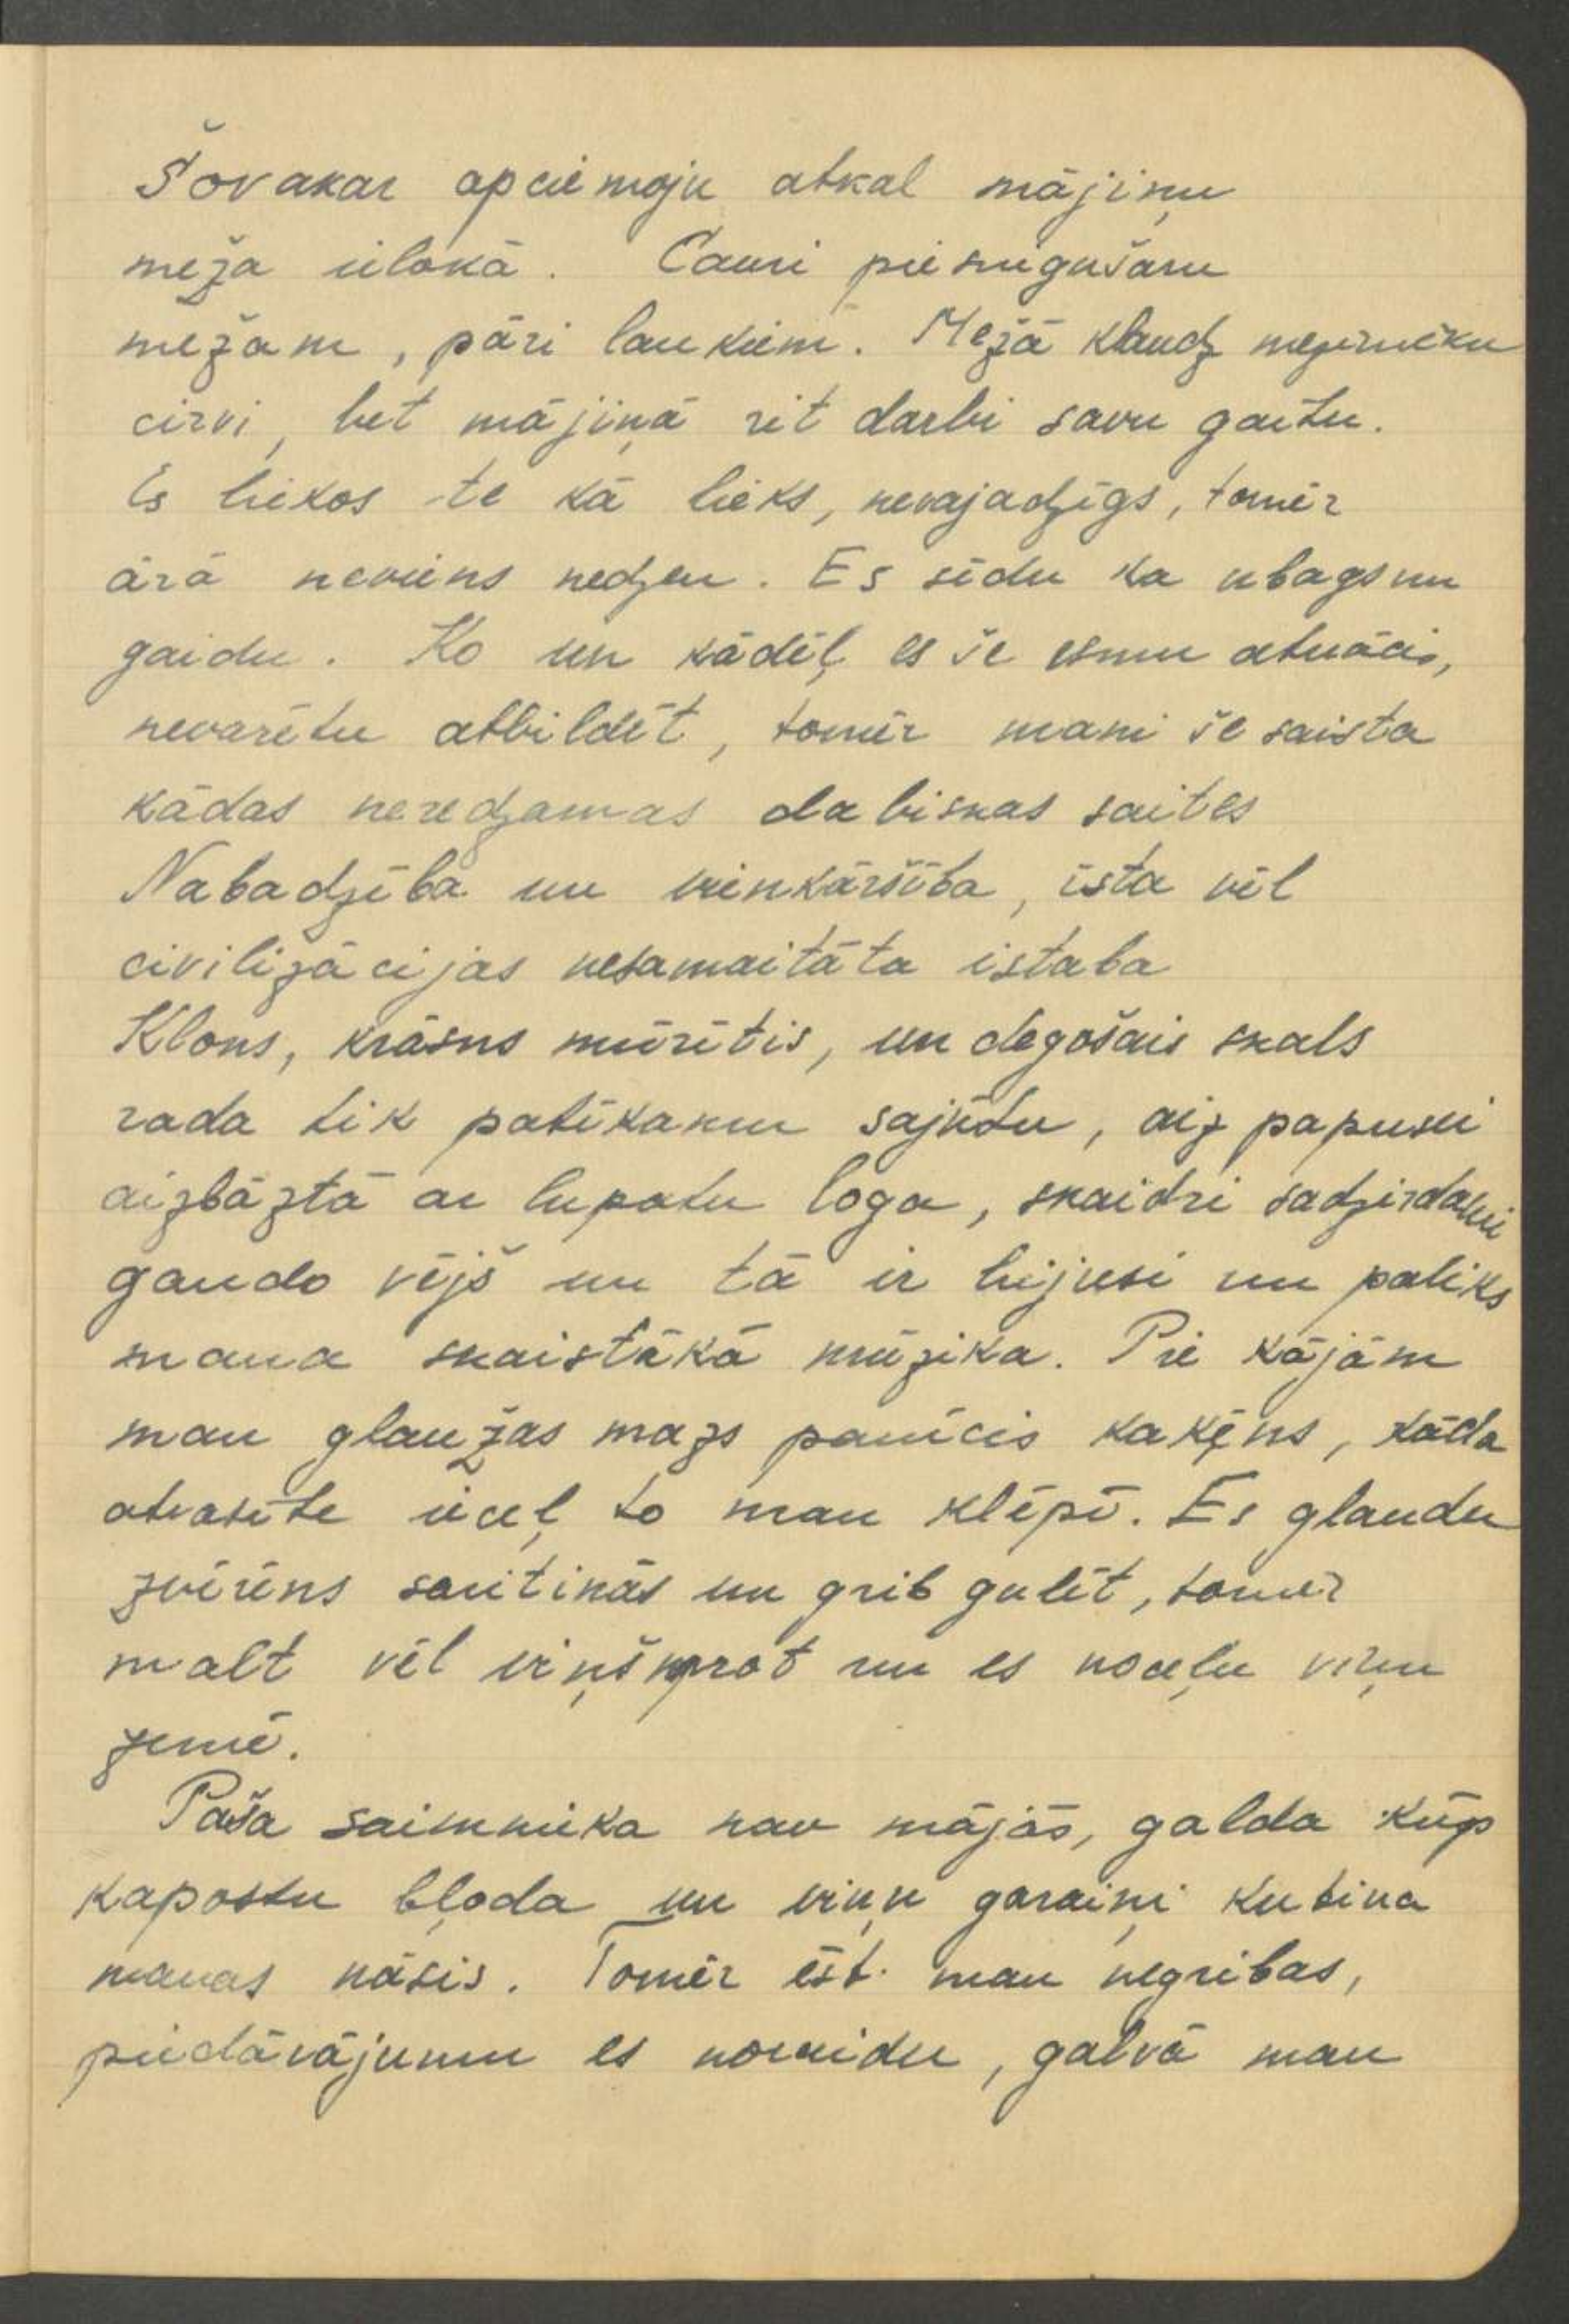 Šovakar apciemoju atkal mājiņu
meža ielokā. Cauri piesnigušam
mežam, pāri laukiem. Mežā klaudz mežinieku
cirvi, bet mājiņā rit darbi savu gaitu.
Es liekos te kā lieks, nevajadzīgs, tomēr
ārā neviens nedzen. Es sēdu ka ubags un
gaidu. Ko un kādēļ es še esmu atnācis,
nevarētu atbildēt, tomēr mani še saista
kādas neredzamas dabiskas saites
Nabadzība un vienkāršība, īsta vēl
civilizācijas nesamaitāta istaba
Klons, krāsns mūrītis, un degošais skals
rada tik patīkamu sajūtu, aiz papuski
aizbāztā ar lupatu loga, skaidri sadzirdami
gaudo vējš un tā ir bijusi un paliks
mana skaistākā mūzika. Pie kājām
man glaužas mazs pamīcis kaķēns, kāda
atvasīte iiceļ to man klēpī. Es glaudu
zvēriens saritinās un grib gulēt, tomēr
malt vēl viņš prot un es noceļu viņu
zemē.
Paša saimnieka nav mājās, galda kūp
kapostu bļoda un viņu garaiņi kutina
manas nāsis. Tomēr ēst man negribas,
piedāvājumu es noraidu, galvā man